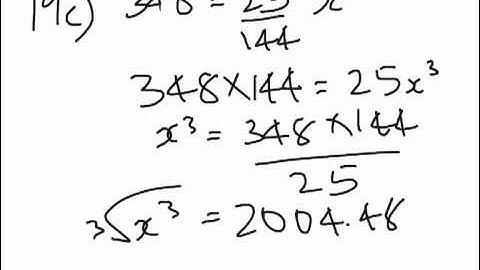 19c) 348 = 25/144 x
348×144 = 25x³
x³ = 348×144/25
∛x³ = 2004.48